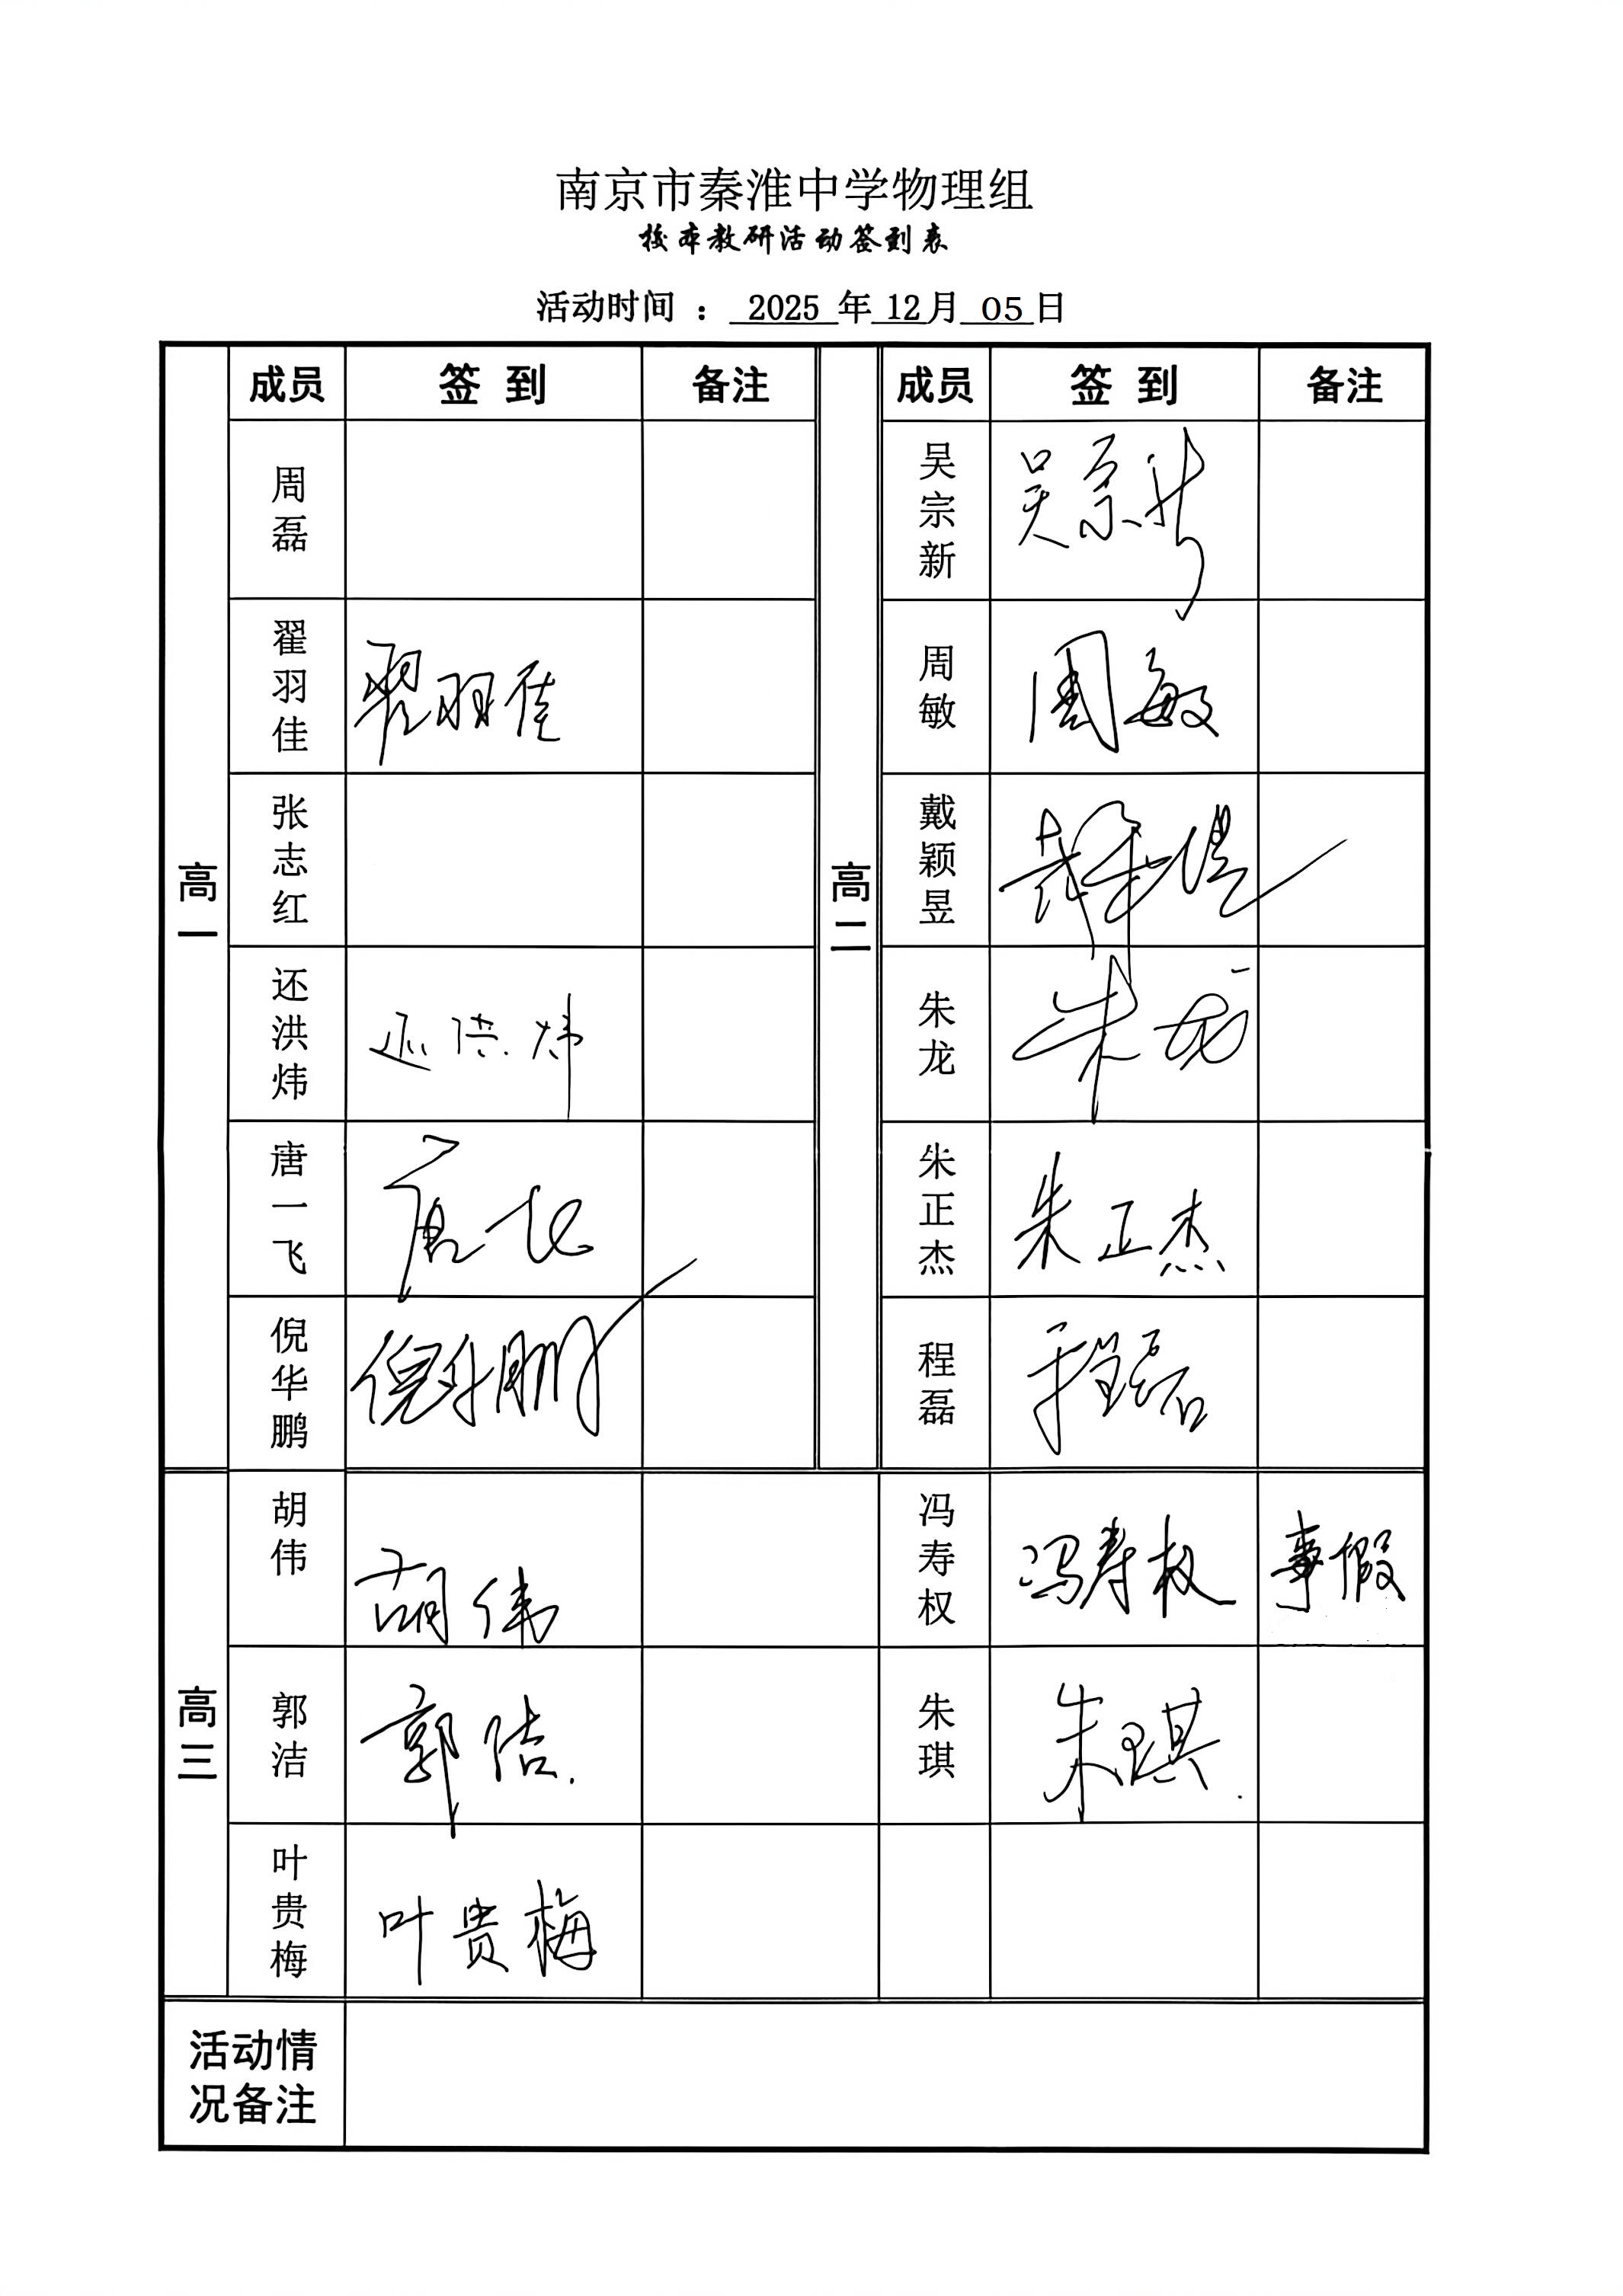 南京市秦淮中学物理组
校本教研活动签到表
活动时间 ： 2025 年 12 月 05 日
成员 签 到 备注 成员 签 到 备注
高一 高二
周磊 吴宗新 吴宗新
翟羽佳 翟羽佳 周敏 周敏
张志红 戴颖昱
还洪炜 还洪炜 朱龙 朱龙
唐一飞 朱正杰 朱正杰
倪华鹏 倪华鹏 程磊 程磊
高三
胡伟 胡伟 冯寿权 冯寿权 事假
郭洁 郭洁 朱琪 朱琪
叶贵梅 叶贵梅
活动情
况备注